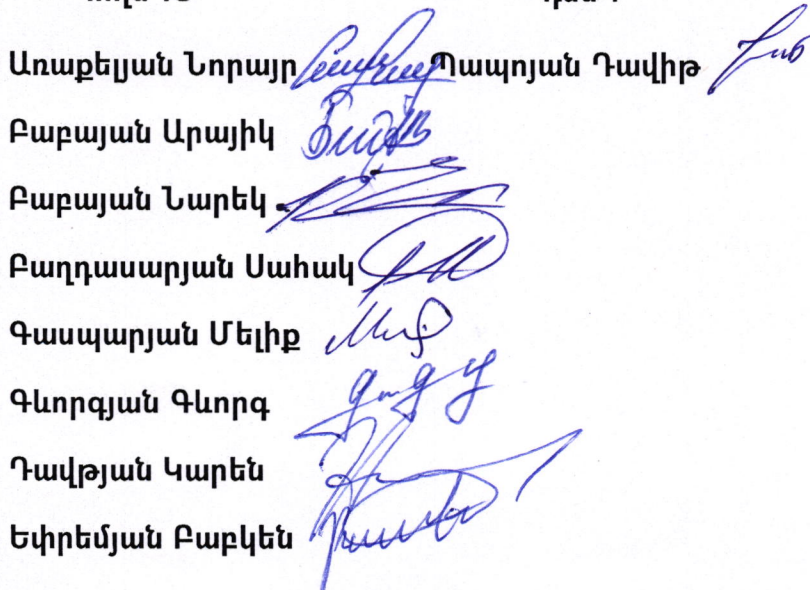 Առաքելյան Նորայր Պապոյան Դավիթ
Բաբայան Արայիկ
Բաբայան Նարեկ
Բաղդասարյան Սահակ
Գասպարյան Մելիք
Գևորգյան Գևորգ
Դավթյան Կարեն
Եփրեմյան Բաբկեն